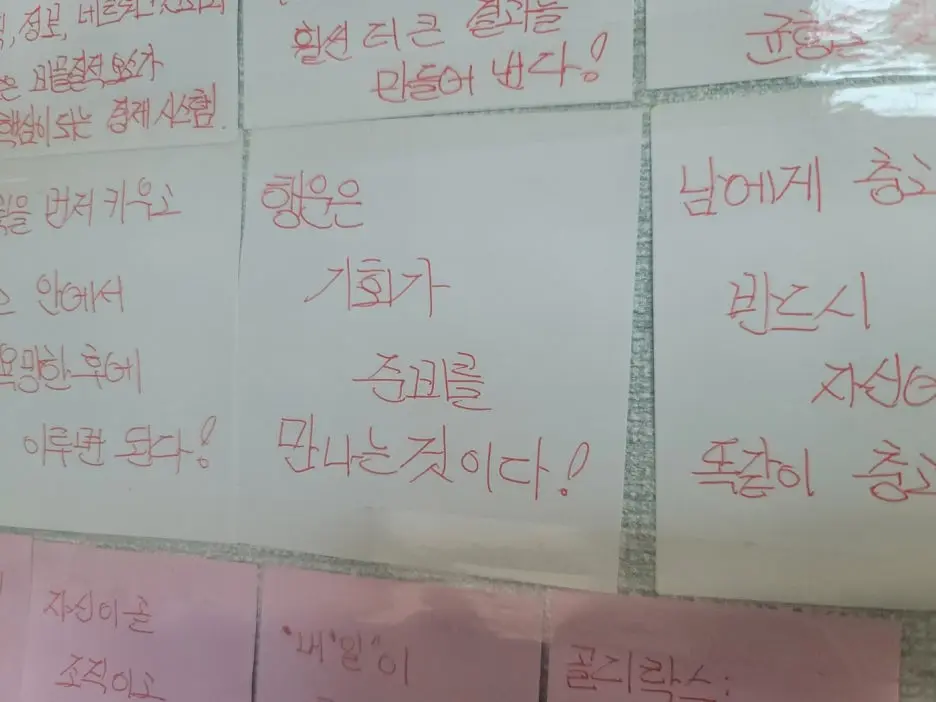 정보, 네트워크
비물질적 요소가
핵심이 되는 경제 시스템.
훨씬 더 큰 결과를
만들어 낸다!
균형은
먼저 키우고
안에서
욕망한 후에
이루면 된다!
행운은
기회가
준비를
만나는 것이다!
남에게 충고
반드시
자신에
똑같이 충고
자신이 곧
조직이고
"내"일"이
골디락스: